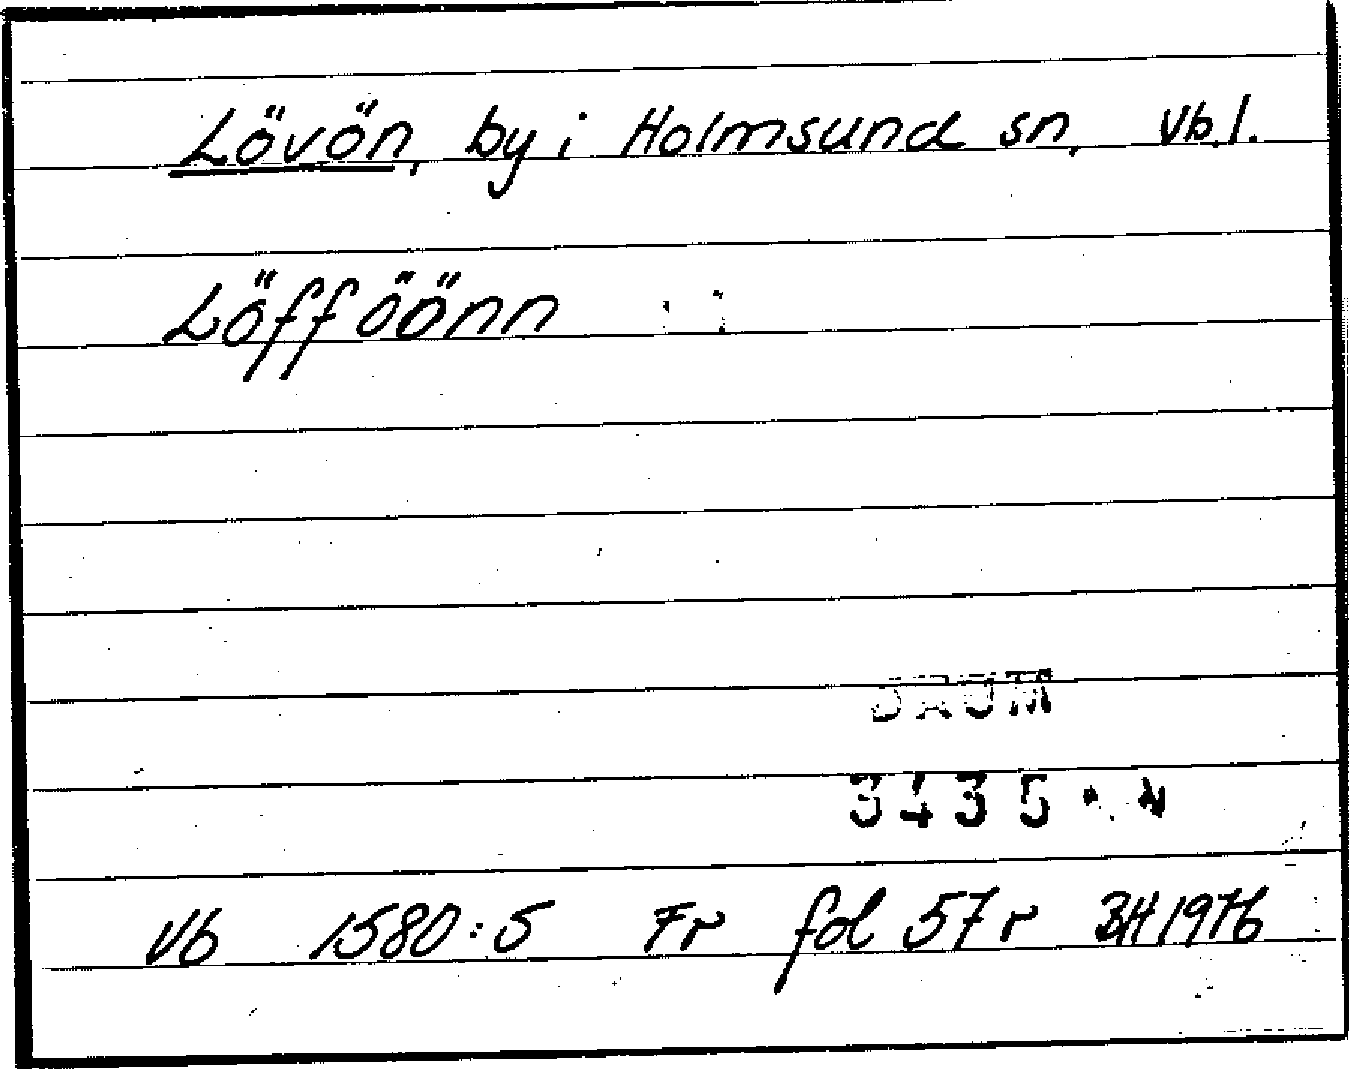 Lövön, by i Holmsund sn, Vb.l.
Löfföönn
DAUM
3435
Vb 1580:5 Fr fol 57 r BH 1976